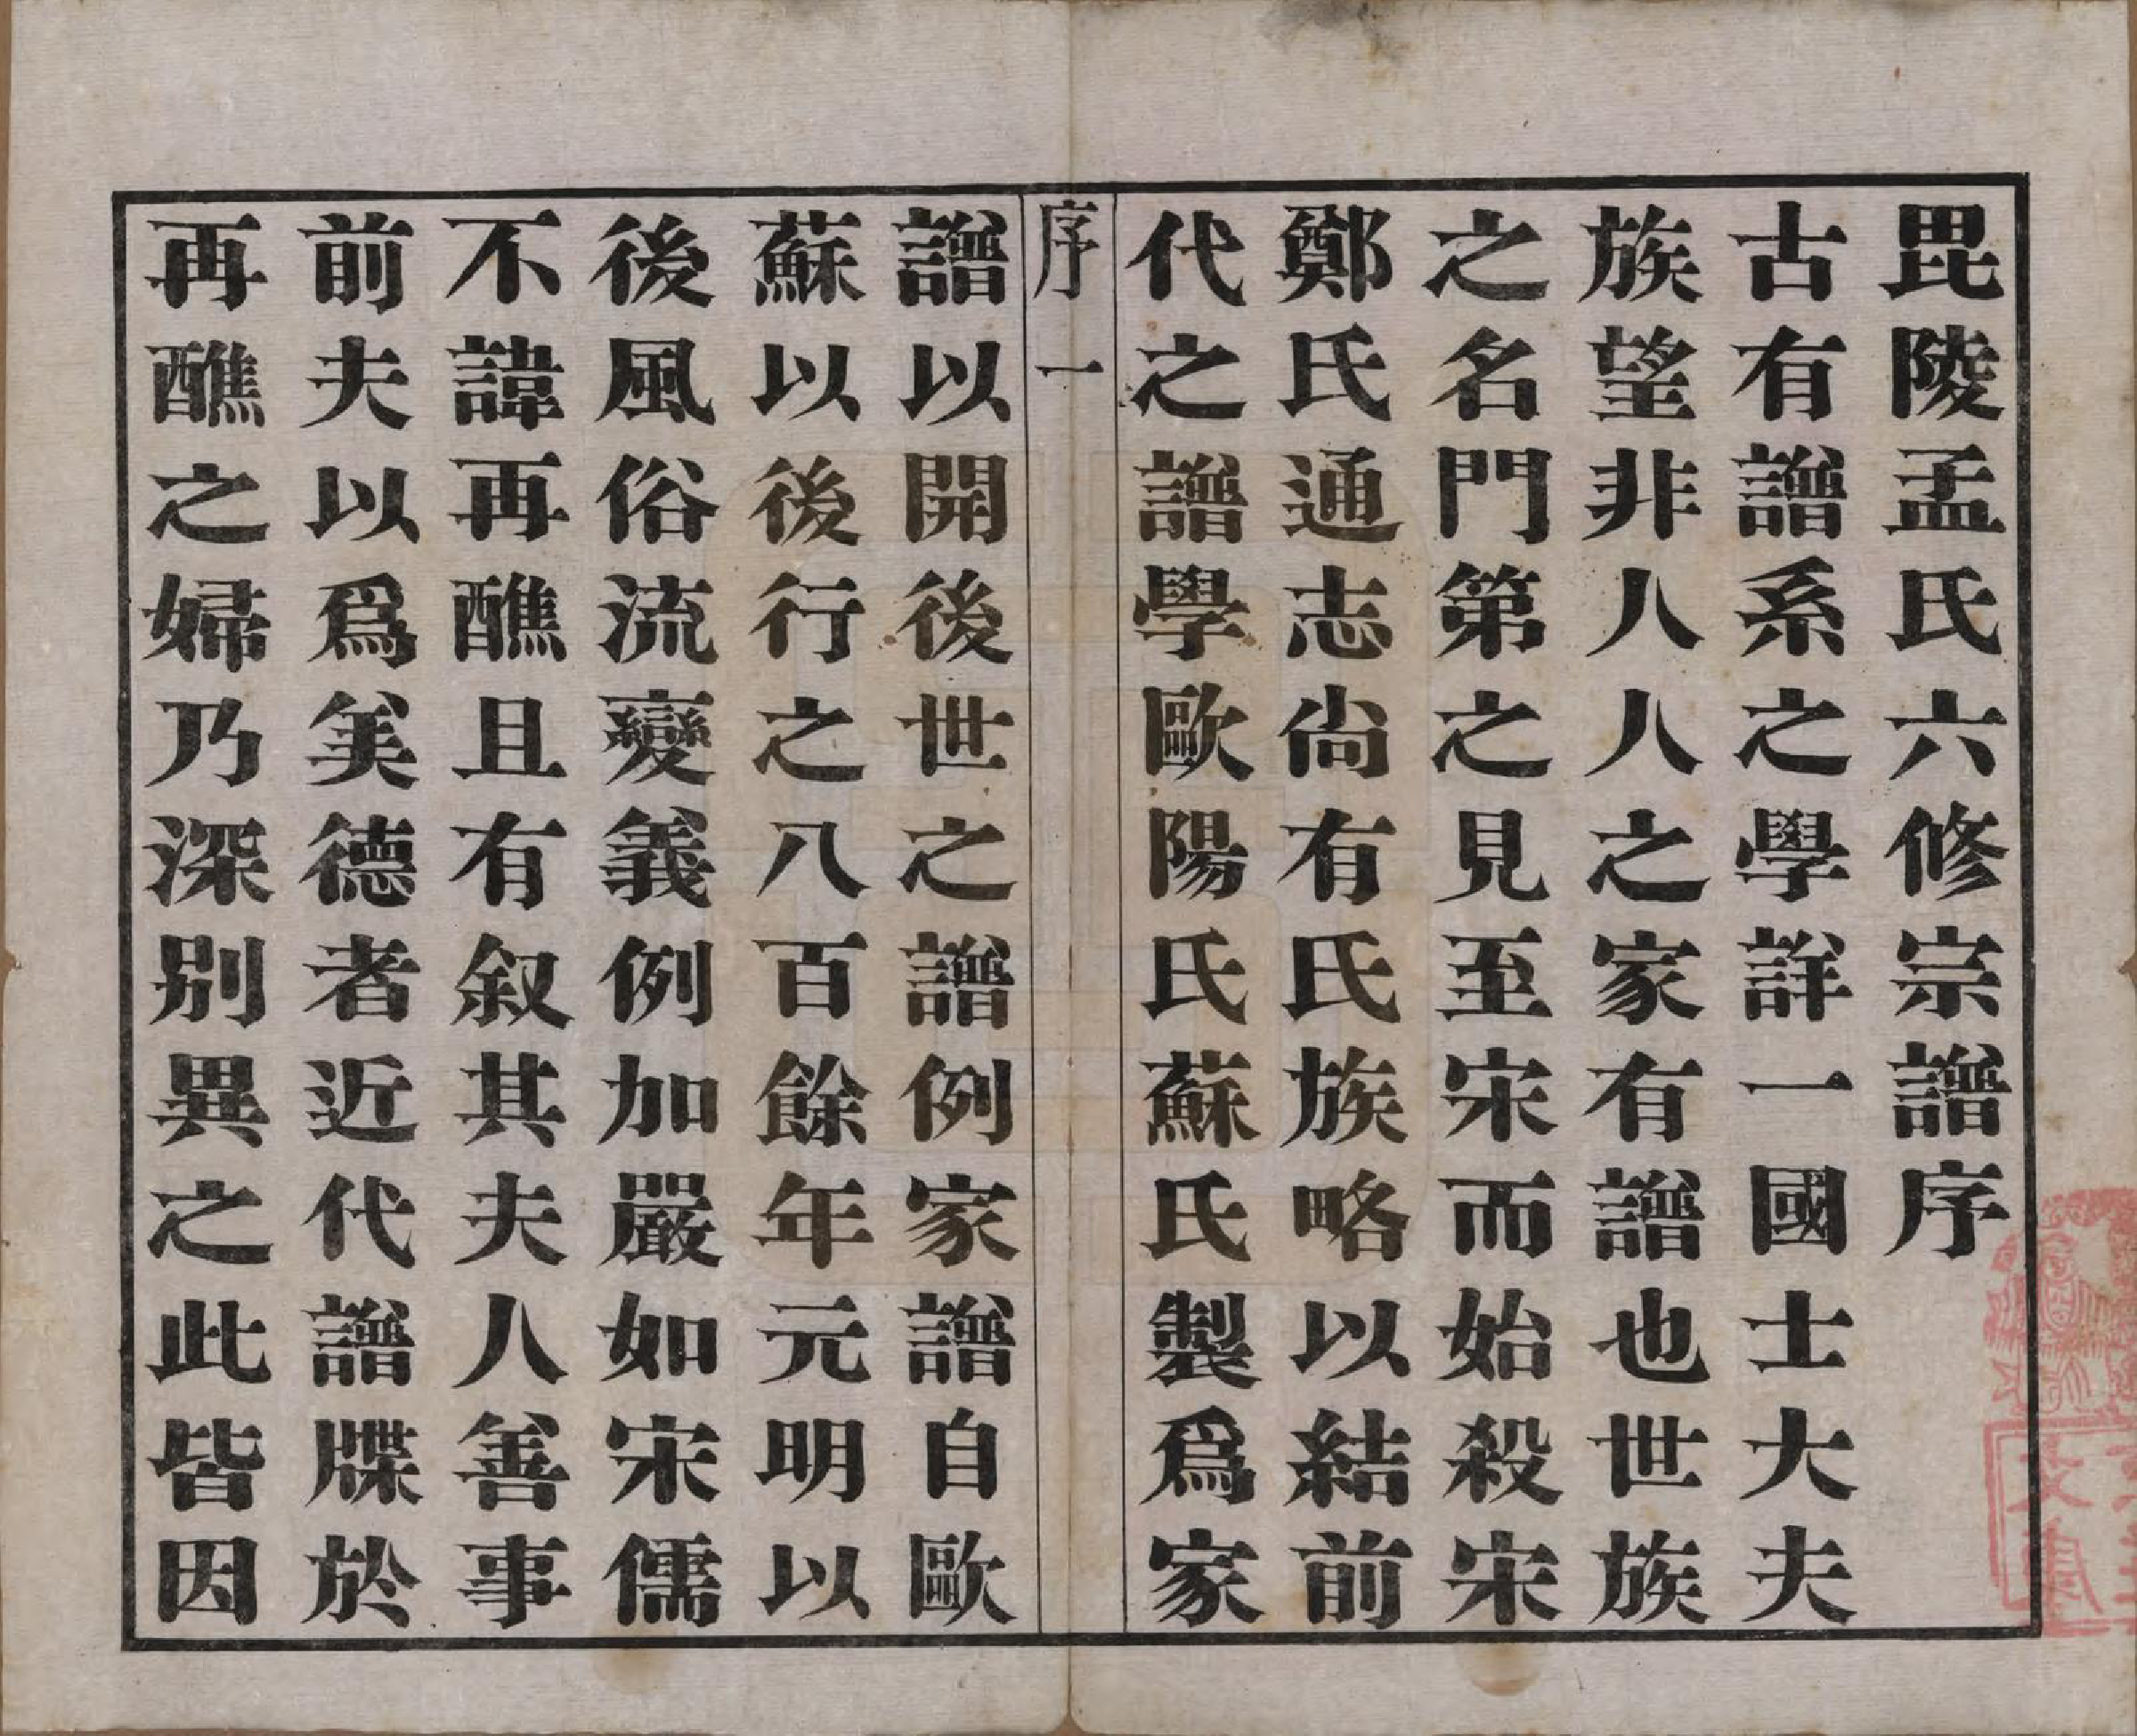 毘陵孟氏六修宗譜序
古有譜系之學詳一國士大夫
族望非人人之家有譜也世族
之名門第之見至宋而始殺宋
鄭氏通志尙有氏族略以結前
代之譜學歐陽氏蘇氏製爲家
序一
譜以開後世之譜例家譜自歐
蘇以後行之八百餘年元明以
後風俗流變義例加嚴如宋儒
不諱再醮且有叙其夫人善事
前夫以爲美德者近代譜牒於
再醮之婦乃深別異之此皆因